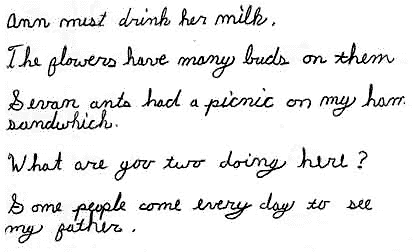 Ann must drink her milk.
The flowers have many buds on them
Sevan ants had a picnic on my ham
sandwhich.
What are you two doing here?
Some people come every day to see
my father.